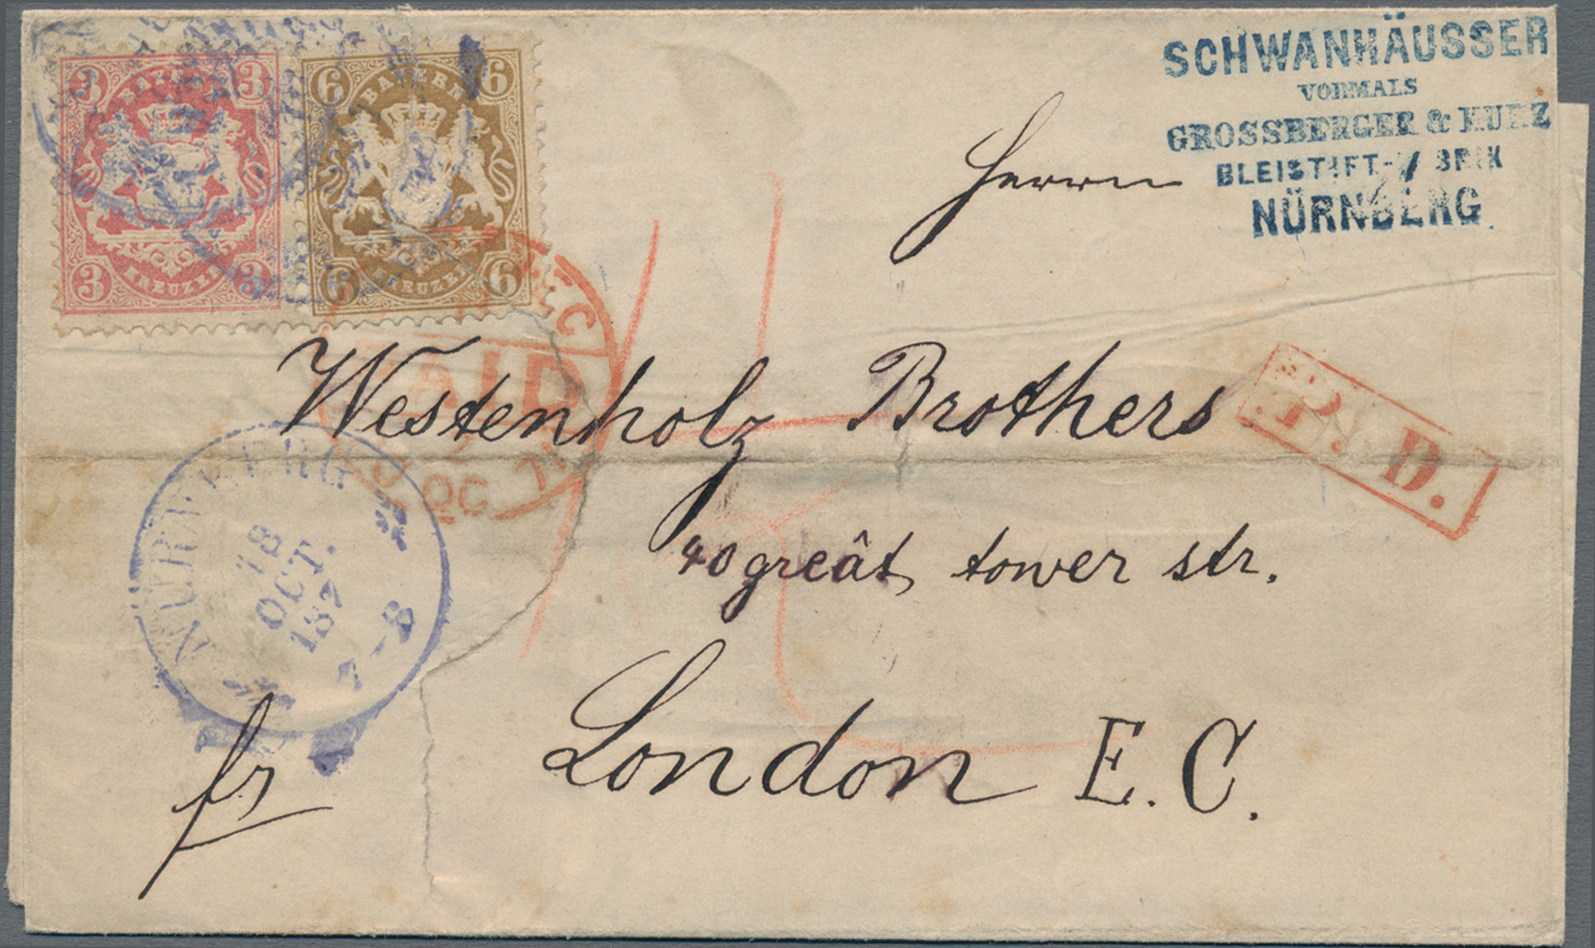 SCHWANHÄUSSER
VORMALS
GROSSBERGER & KURZ
BLEISTIFT-FABRIK
NÜRNBERG
3 3
BAYERN
3 KREUZER 3
6 BAYERN 6
6 KREUZER 6
Herrn
EC
PAID
OC 7
Westenholz Brothers
P. D.
40 greât tower str.
NÜRNBERG
18
OCT.
187
7-8
London E.C.
fr